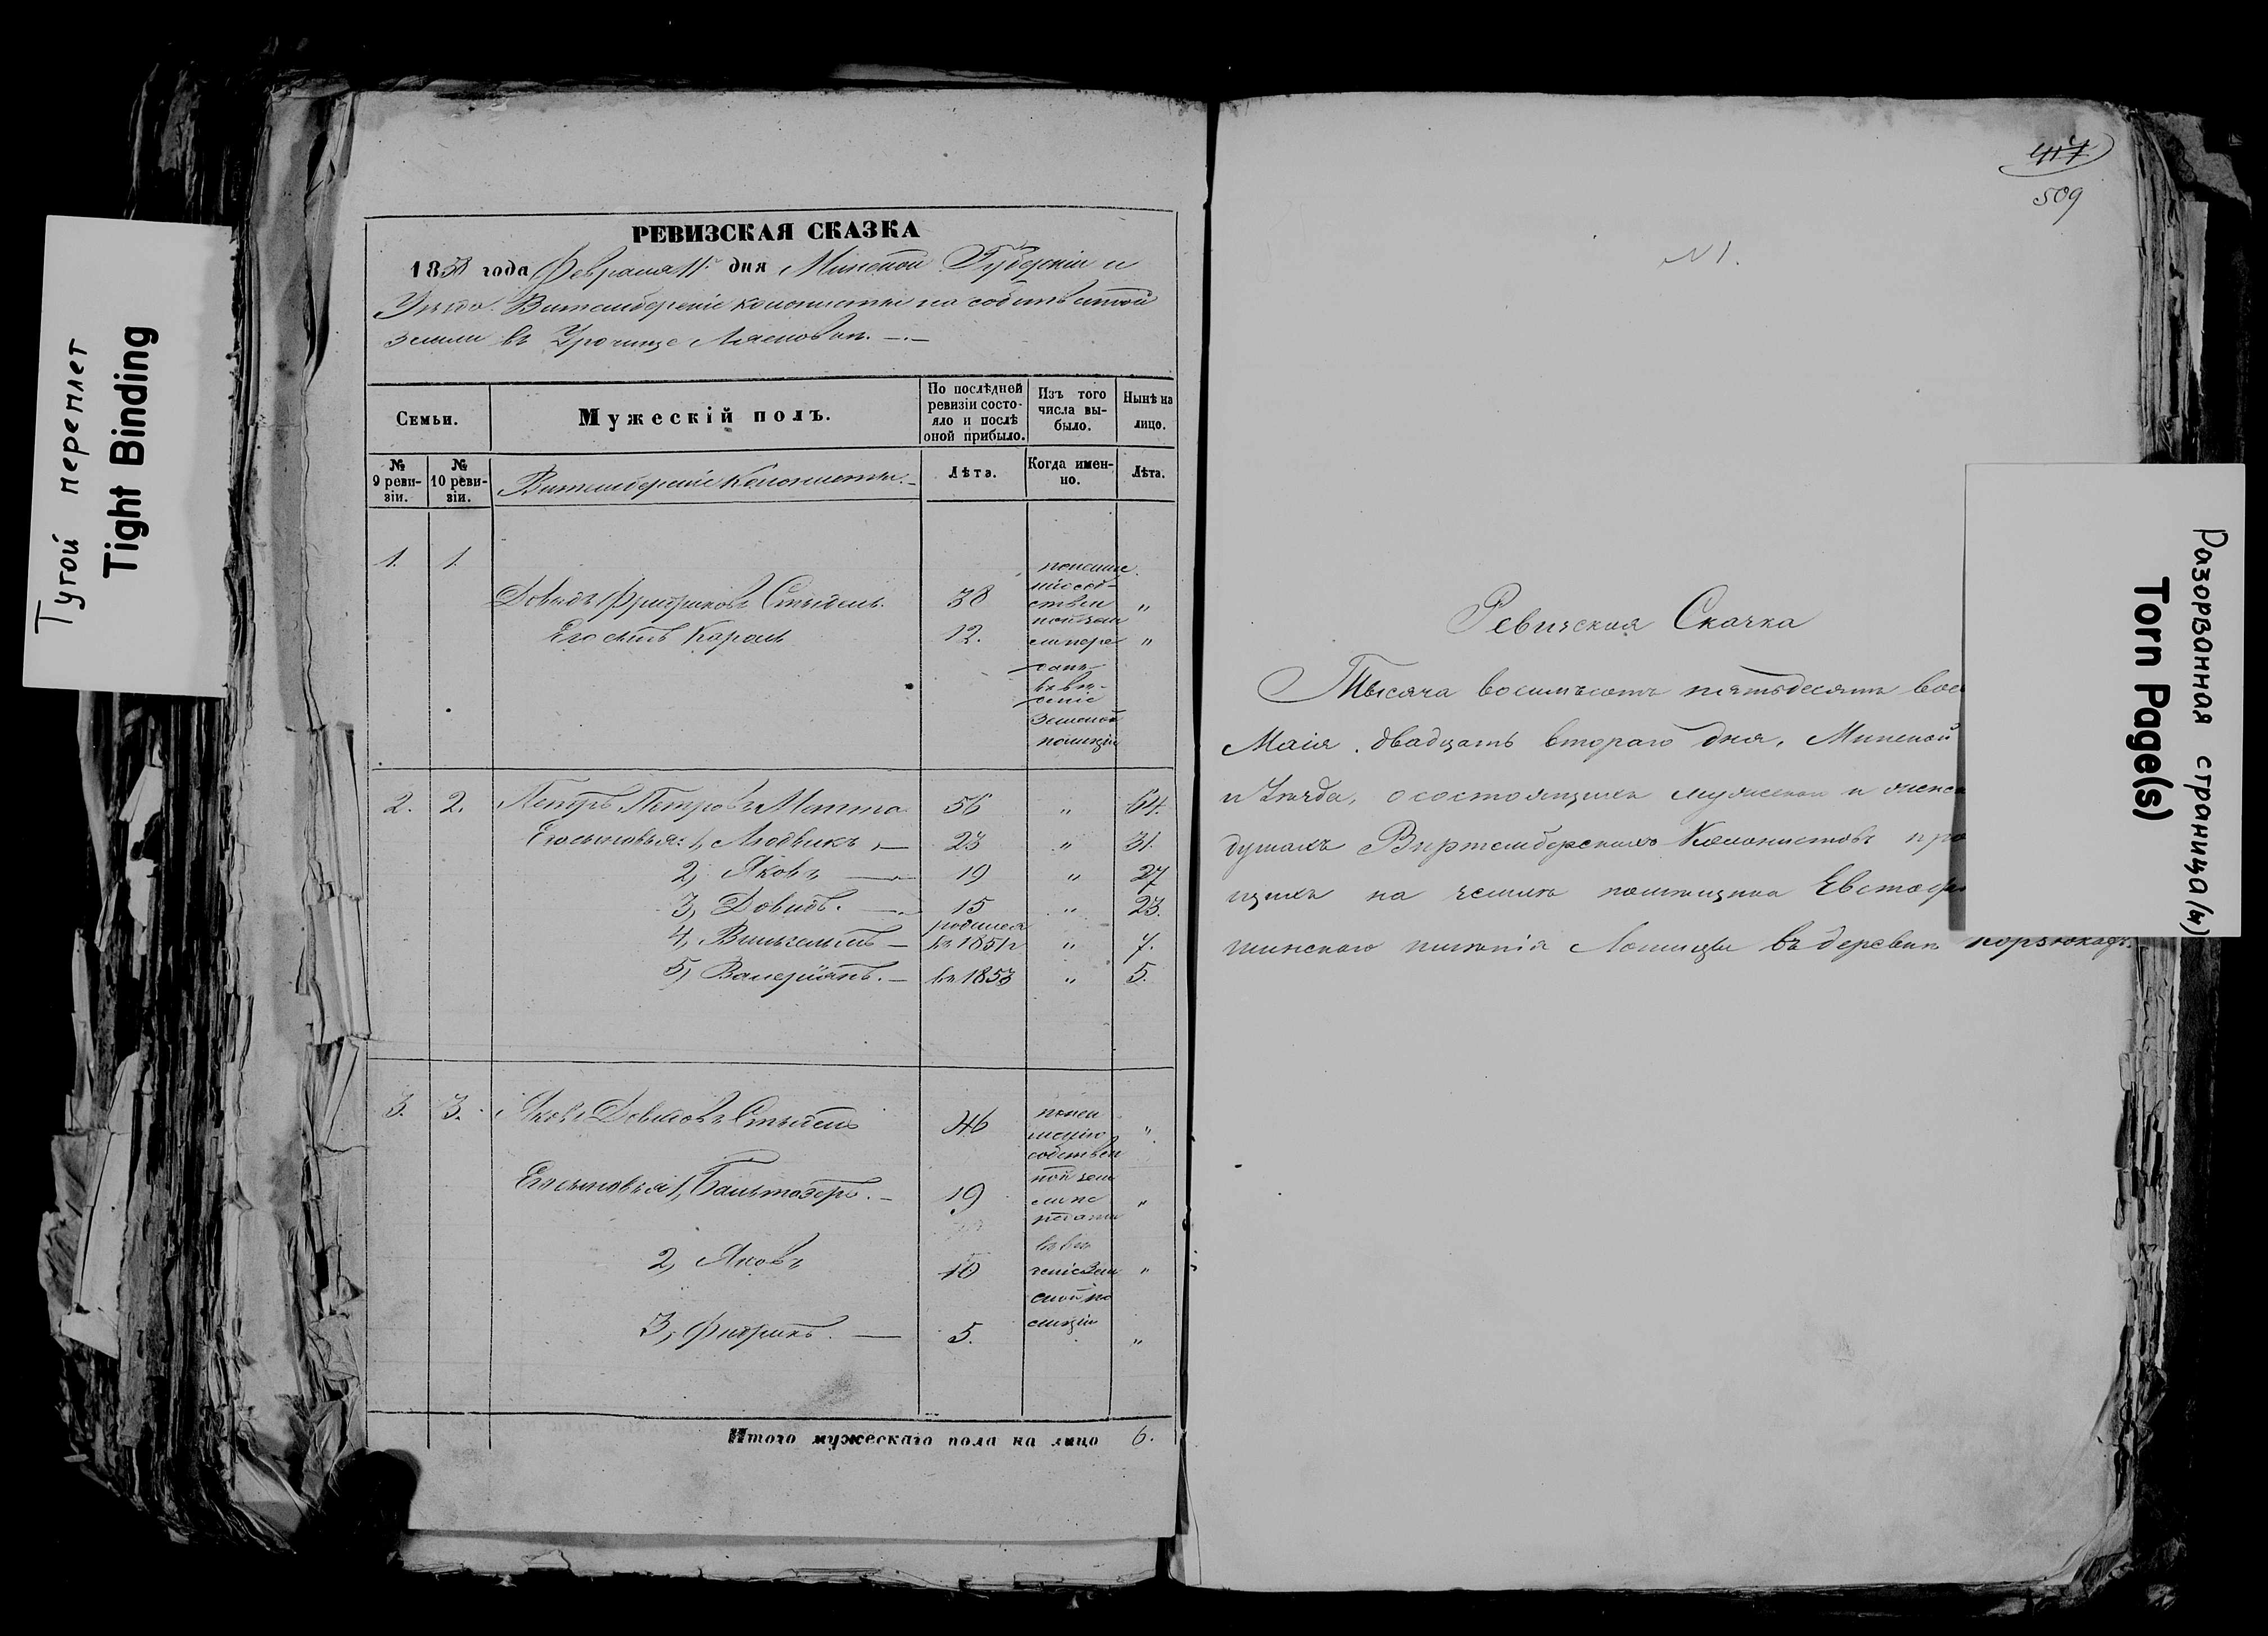 Тугой переплет
Tight Binding
РЕВИЗСКАЯ СКАЗКА
1858 года Февраля 11 дня Минской Губерніи и
Уезда Витембергскіе колонисты на собственной
земли въ Урочище
Семьи.
Мужескій полъ.
По послѣдней
ревизіи состо-
яло и послѣ
оной прибыло.
Изъ того
числа вы-
было.
Нынѣ на
лицо.
№
9 реви-
зіи.
№
10 реви-
зіи.
Витембергскіе Колонисты.
Лѣта.
Когда имен-
но.
Лѣта.
1. 1. Довидъ Фридриковъ 38 "
Его сынъ Кароль 12. "
соб-
ствен
ной зем
ли пере
данъ
въ вѣ-
деніе
Земской
полиціи
2. 2. Петръ Петровъ 56 " 64.
Его сыновья: 1, Людвикъ 23 " 31.
2, Яковъ 19 " 27
3, Довидъ. 15 " 23.
4, Вильгельмъ родился въ 1851г " 7.
5, Валеріянъ. въ 1853 " 5.
3. 3. Яковъ Довидовъ 46 "
Его сыновья 1, Бальтазеръ. 19 "
2, Яковъ 10 "
3, Фидрикъ. 5. "
собствен
ной зем
ли пе
реданы
въ вѣ
деніе Зем
ской по
лиціи
Итого мужескаго пола на лицо 6.
417
509
№1.
Ревизская Сказка
Тысяча восемьсотъ пятьдесятъ вос
Маія двадцать втораго дня, Минской
и Уезда, о состоящихъ мужеска и женск
душахъ Виртембергскихъ Колонистовъ про
щихъ на земли помещика Евстафі
шинскаго имѣнія Лошицы въ деревни Корзюкахъ.
Разорванная страница(ы)
Torn Page(s)